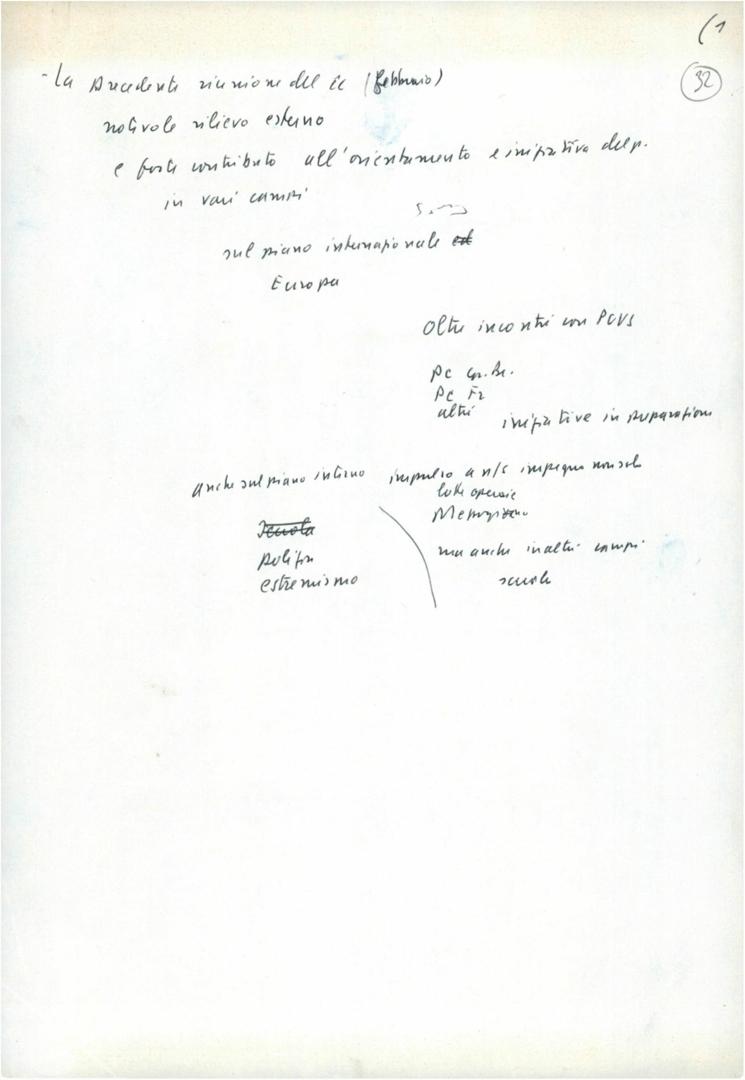 (1
32
- La precedente riunione del CC (febbraio)
notevole rilievo esterno
e forte contributo all'orientamento e iniziativa del p.
in vari campi
sul piano internazionale ed
Europa
Oltre incontri con PCUS
PC Gr. Br.
PC Fr
altri iniziative in preparazione
anche sul piano interno impulso a n/s impegno non solo
lotte operaie
Mezzogiorno
Scuola
polizia
ma anche in altri campi
estremismo
scuola